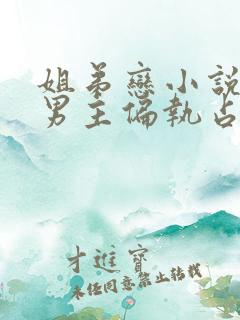 姐弟戀小說
男主偏執占
才進寶
未經同意禁止轉載